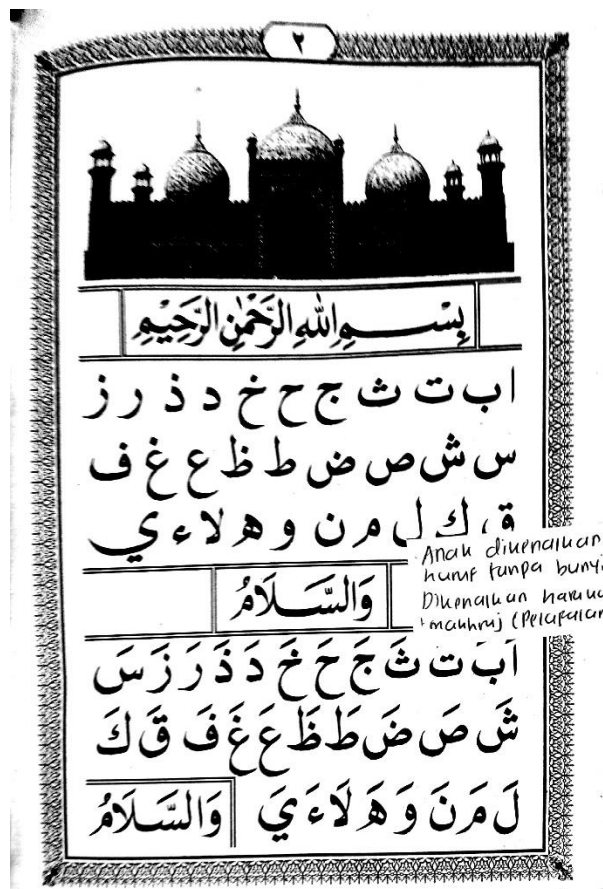 ٢
بِسْــــمِ اللهِ الرَّحْمٰنِ الرَّحِيْمِ
ا ب ت ث ج ح خ د ذ ر ز
س ش ص ض ط ظ ع غ ف
ق ك ل م ن و ه لا ء ي
Anak dikenalkan
huruf tanpa bunyi
وَالسَّــلَامُ
Dikenalkan
makhraj (Pelafalan
اَ بَ تَ ثَ جَ حَ خَ دَ ذَ رَ زَ سَ
شَ صَ ضَ طَ ظَ عَ غَ فَ قَ كَ
لَ مَ نَ وَ هَ لَا ءَ يَ
وَالسَّــلَامُ